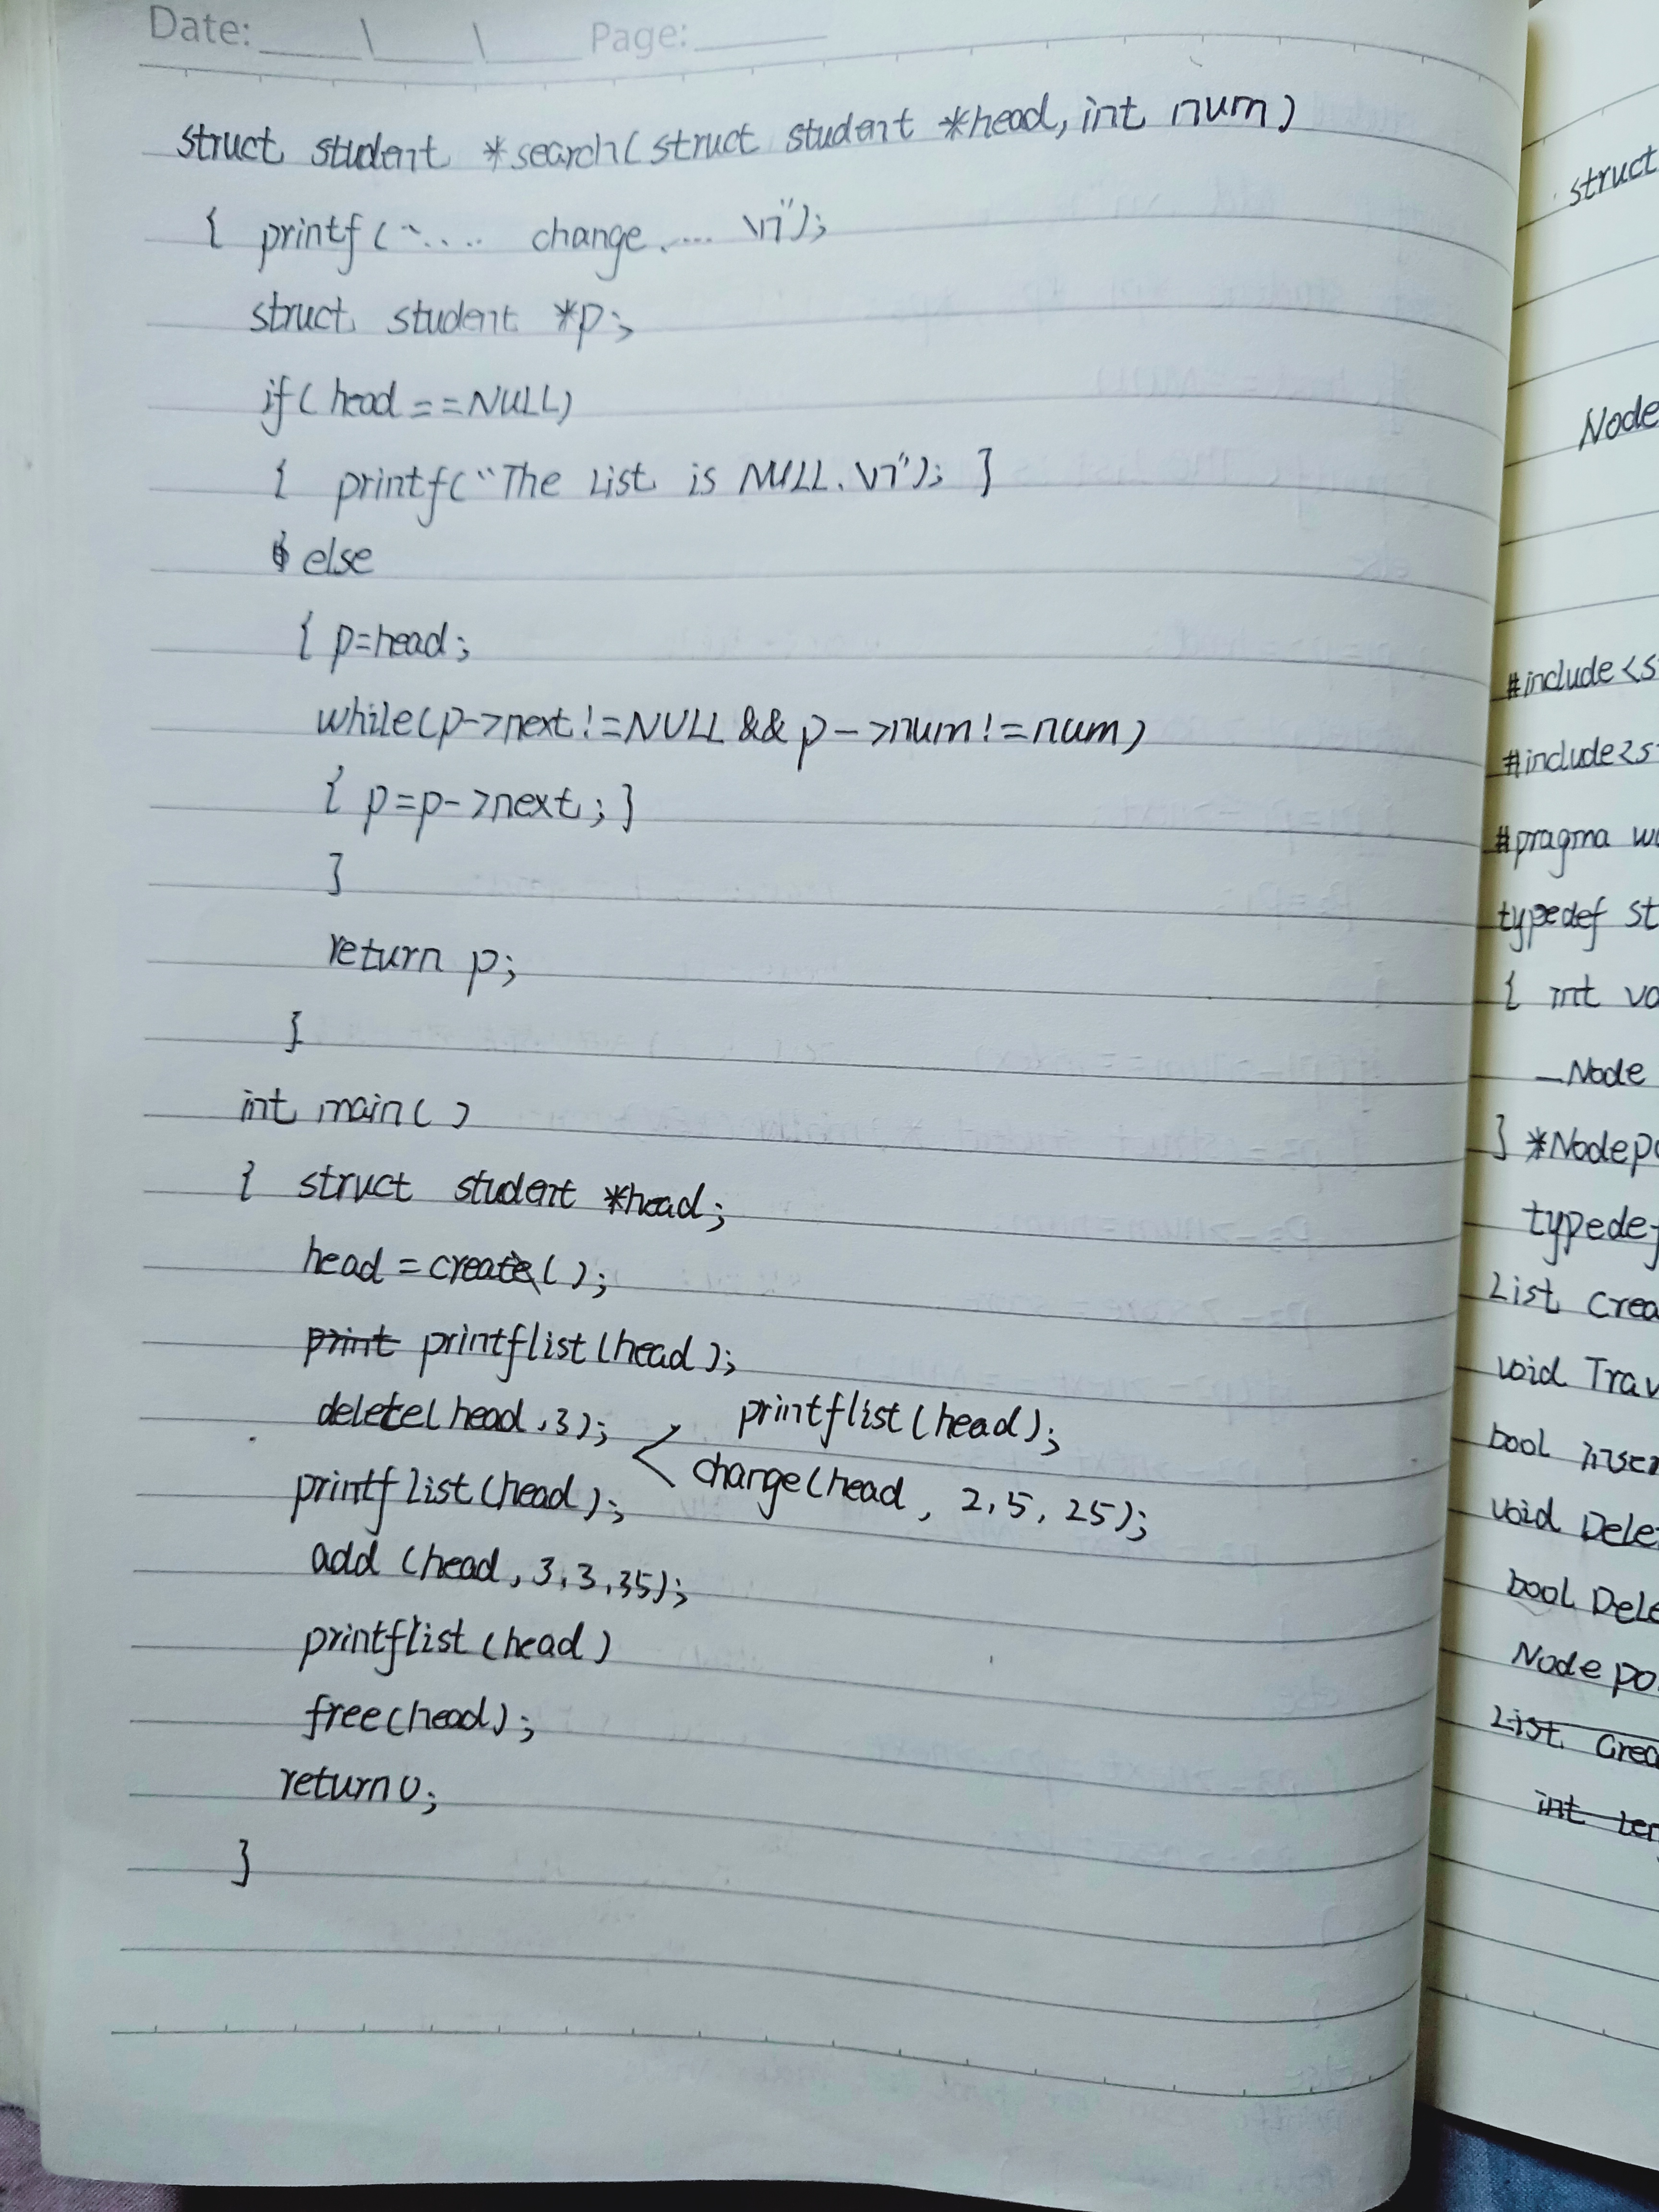 Date: \ \ Page:
struct student *search(struct student *head, int num)
{ printf(".... change .... \n");
struct student *p;
if(head==NULL)
{ printf("The List is NULL.\n"); }
else
{ p=head;
while(p->next!=NULL && p->num!=num)
{ p=p->next; }
}
return p;
}
int main()
{ struct student *head;
head=create();
print printflist(head);
delete(head,3);
printflist(head);
change(head, 2,5,25);
printflist(head);
add (head,3,3,35);
printflist(head)
free(head);
return 0;
}
struct
Node
#include<s
#include<s
#pragma
typedef st
{ int
_Node
} *Nodepo
typedef
List Crea
void Trav
bool Inser
void Dele
bool Dele
Node po
List Crea
int